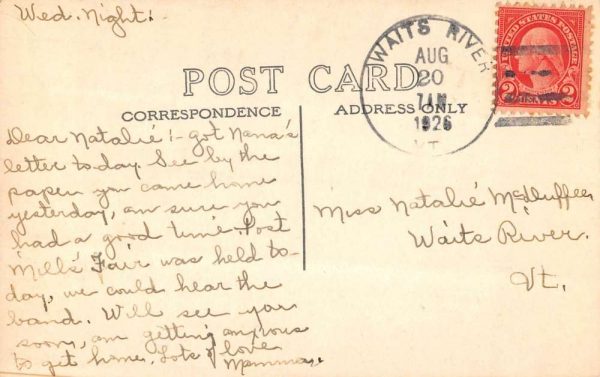 Wed. Night:
POST CARD
CORRESPONDENCE
ADDRESS ONLY
WAITS RIVER
AUG
20
7AM
1926
VT.
UNITED STATES POSTAGE
2 2
Dear Natalie! - got Nana's
letter to-day. See by the
paper you came home
yesterday, am sure you
had a good time. Post
Mills Fair was held to-
day, we could hear the
band. Will see you
soon, am getting anxious
to get home. Lots of love
Mamma.
Miss Natalié McDuffee,
Waits River.
Vt.